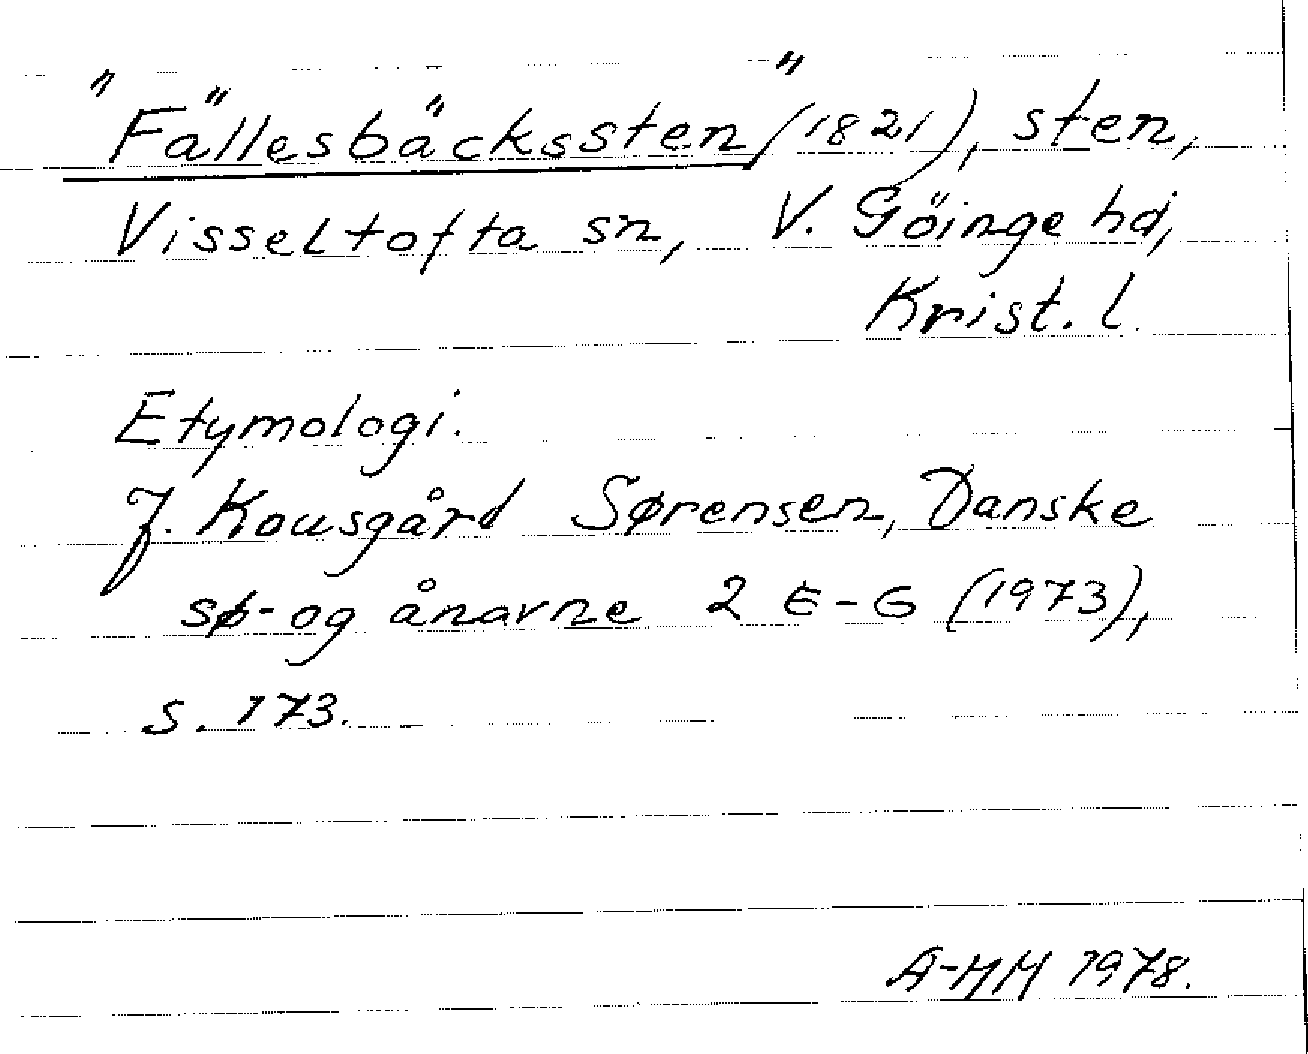 "Fällesbäckssten" (1821), sten,
Visseltofta sn, V. Göinge hd,
Krist. l.
Etymologi.
J. Kousgård Sørensen, Danske
sø- og ånavne 2 E-G (1973),
s. 173.
A-MM 1978.